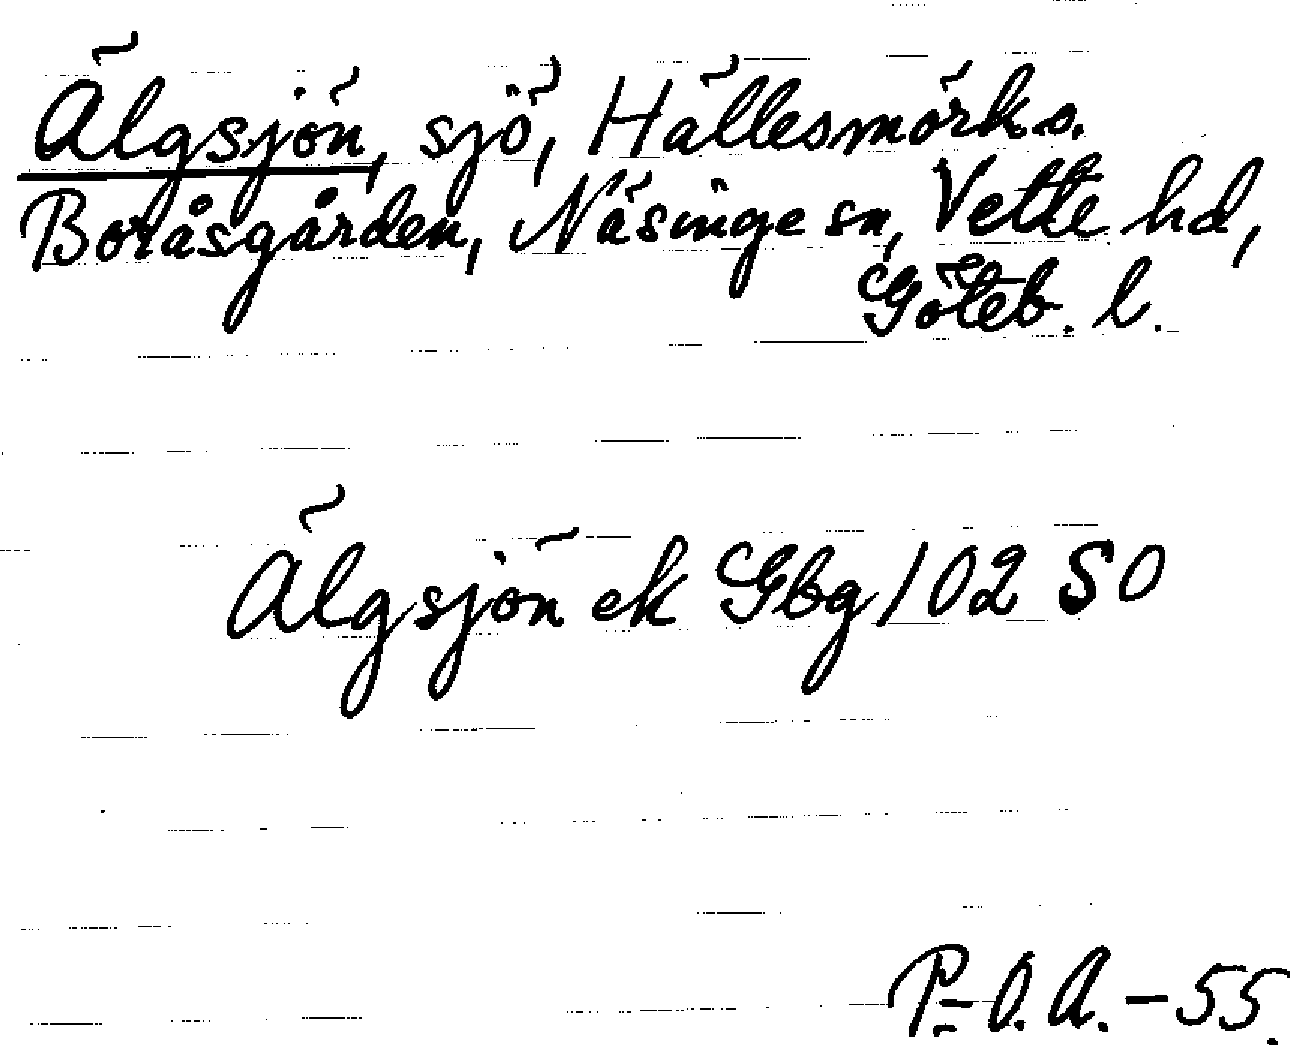 Älgsjön, sjö, Hällesmörk o.
Boråsgården, Näsinge sn, Vette hd,
Göteb. l.
Älgsjön ek Gbg 102 SO
P-O.A.-55.